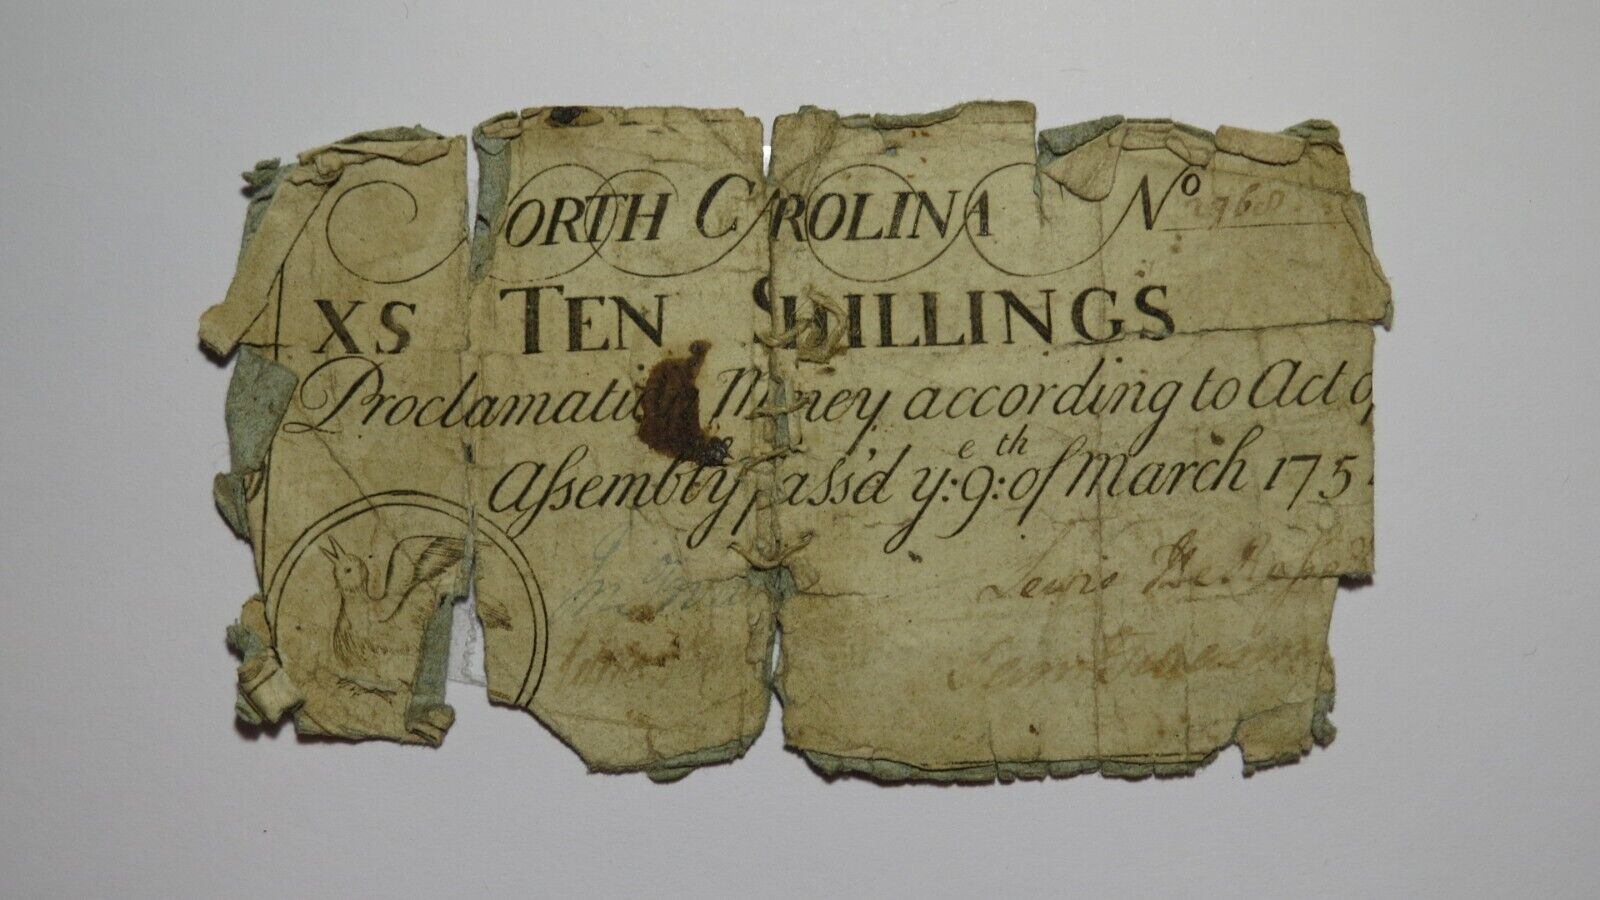 ORTH CAROLINA No 2768
XS TEN SHILLINGS
Proclamation Money according to Act of
Aſsembly paſs'd ye: 9th: of March 175
Lewis De Roſset
Sam